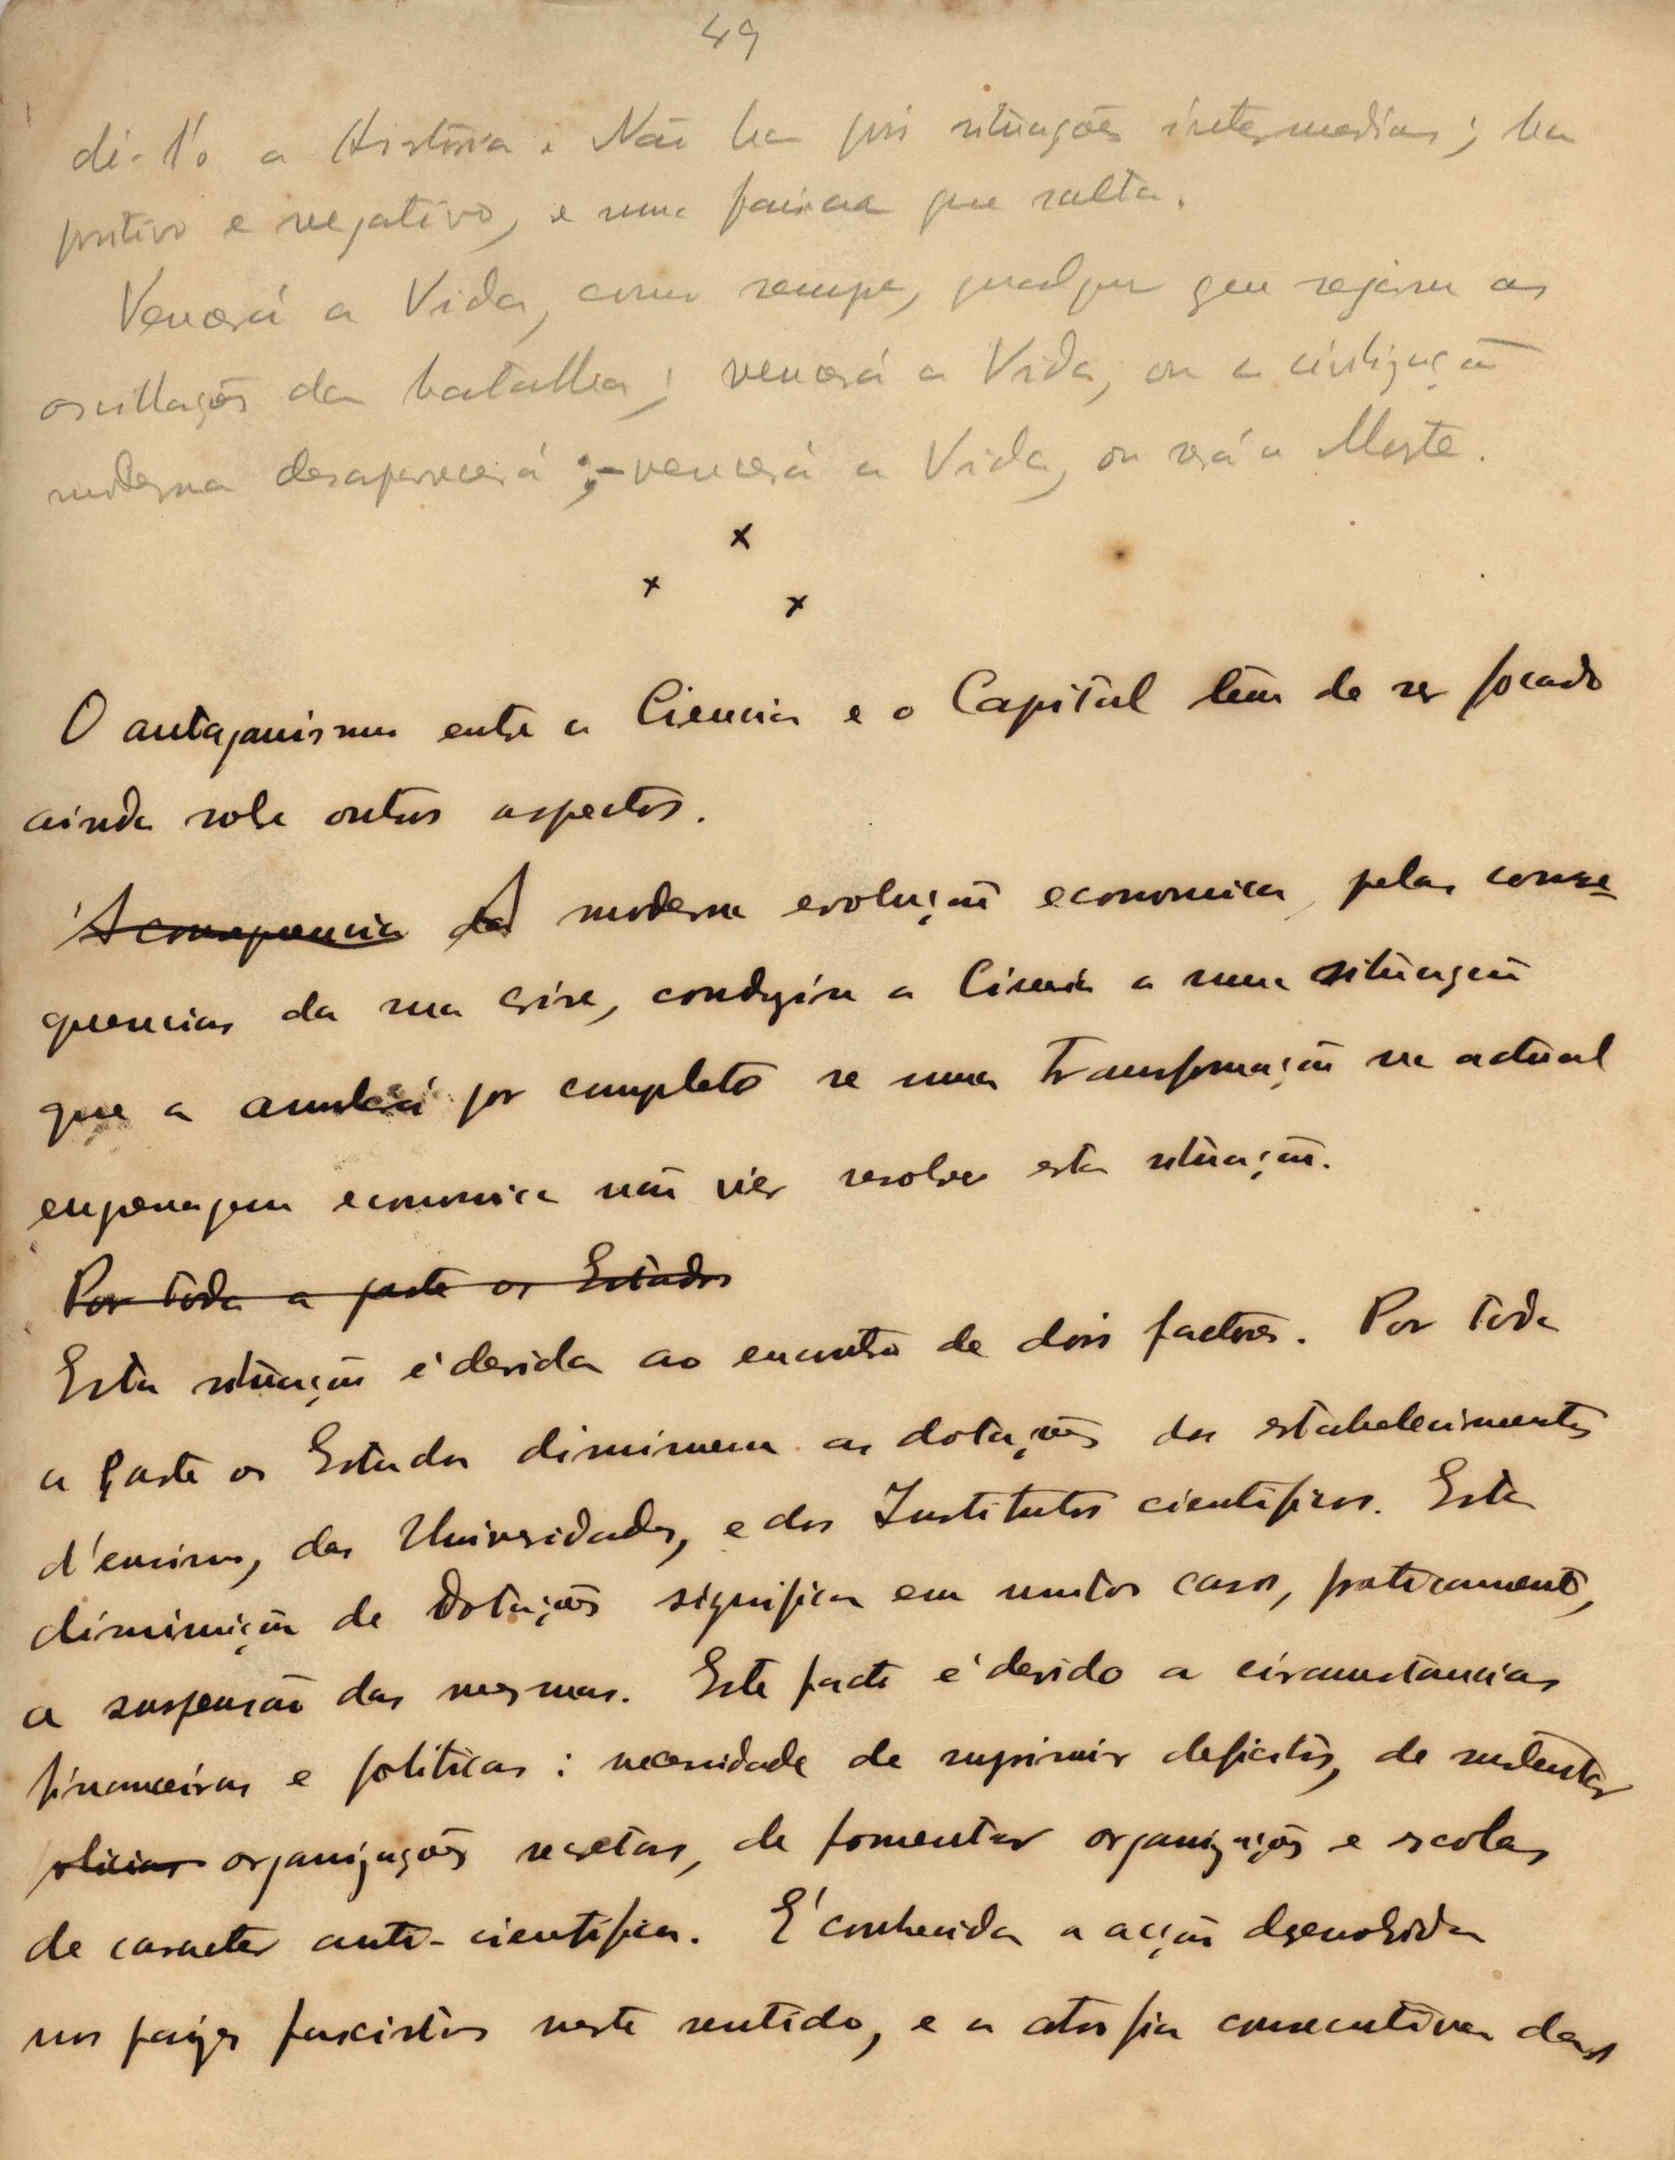 49
di-l'o a Historia. Não ha pois situações intermedias; ha
positivo e negativo, e uma faisca que salta.
Vencerá a Vida, como sempre, qualquer que sejam as
oscillações da batalha; vencerá a Vida, ou a civilização
moderna desaparecerá; - vencerá a Vida, ou será a Morte.
x
x x
O antagonismo entre a Ciencia e o Capital tem de ser focado
ainda sobre outros aspectos.
A consequencia da A moderna evolução economica, pelas conse-
quencias da sua crise, conduziu a Ciencia a uma situação
que a anulará por completo se uma transformação na actual
engrenagem economica não vier resolver esta situação.
Por toda a parte os Estados
Esta situação é devida ao encontro de dois factores. Por toda
a parte os Estados diminuem as dotações dos estabelecimentos
d'ensino, das Universidades, e dos Institutos cientificos. Esta
diminuição de dotações significa em muitos casos, praticamente,
a suspensão das mesmas. Este facto é devido a circunstancias
financeiras e politicas: necessidade de suprimir deficits, de sustentar
policias organizações secretas, de fomentar organizações e escolas
de caracter anti-cientifico. É conhecida a acção desenvolvida
nos paizes fascistas neste sentido, e a atrofia consecutiva das